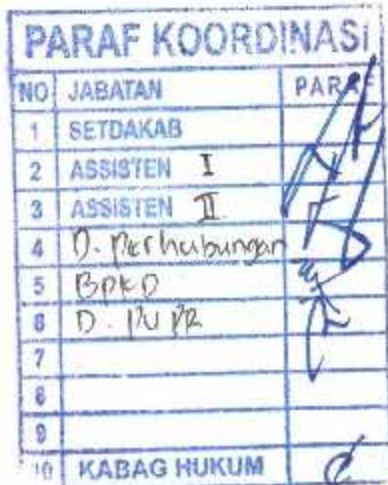 PARAF KOORDINASI
NO JABATAN PARAF
1 SETDAKAB
2 ASSISTEN I
3 ASSISTEN II
4 D. Perhubungan
5 BPKD
6 D. PUPR
7
8
9
10 KABAG HUKUM